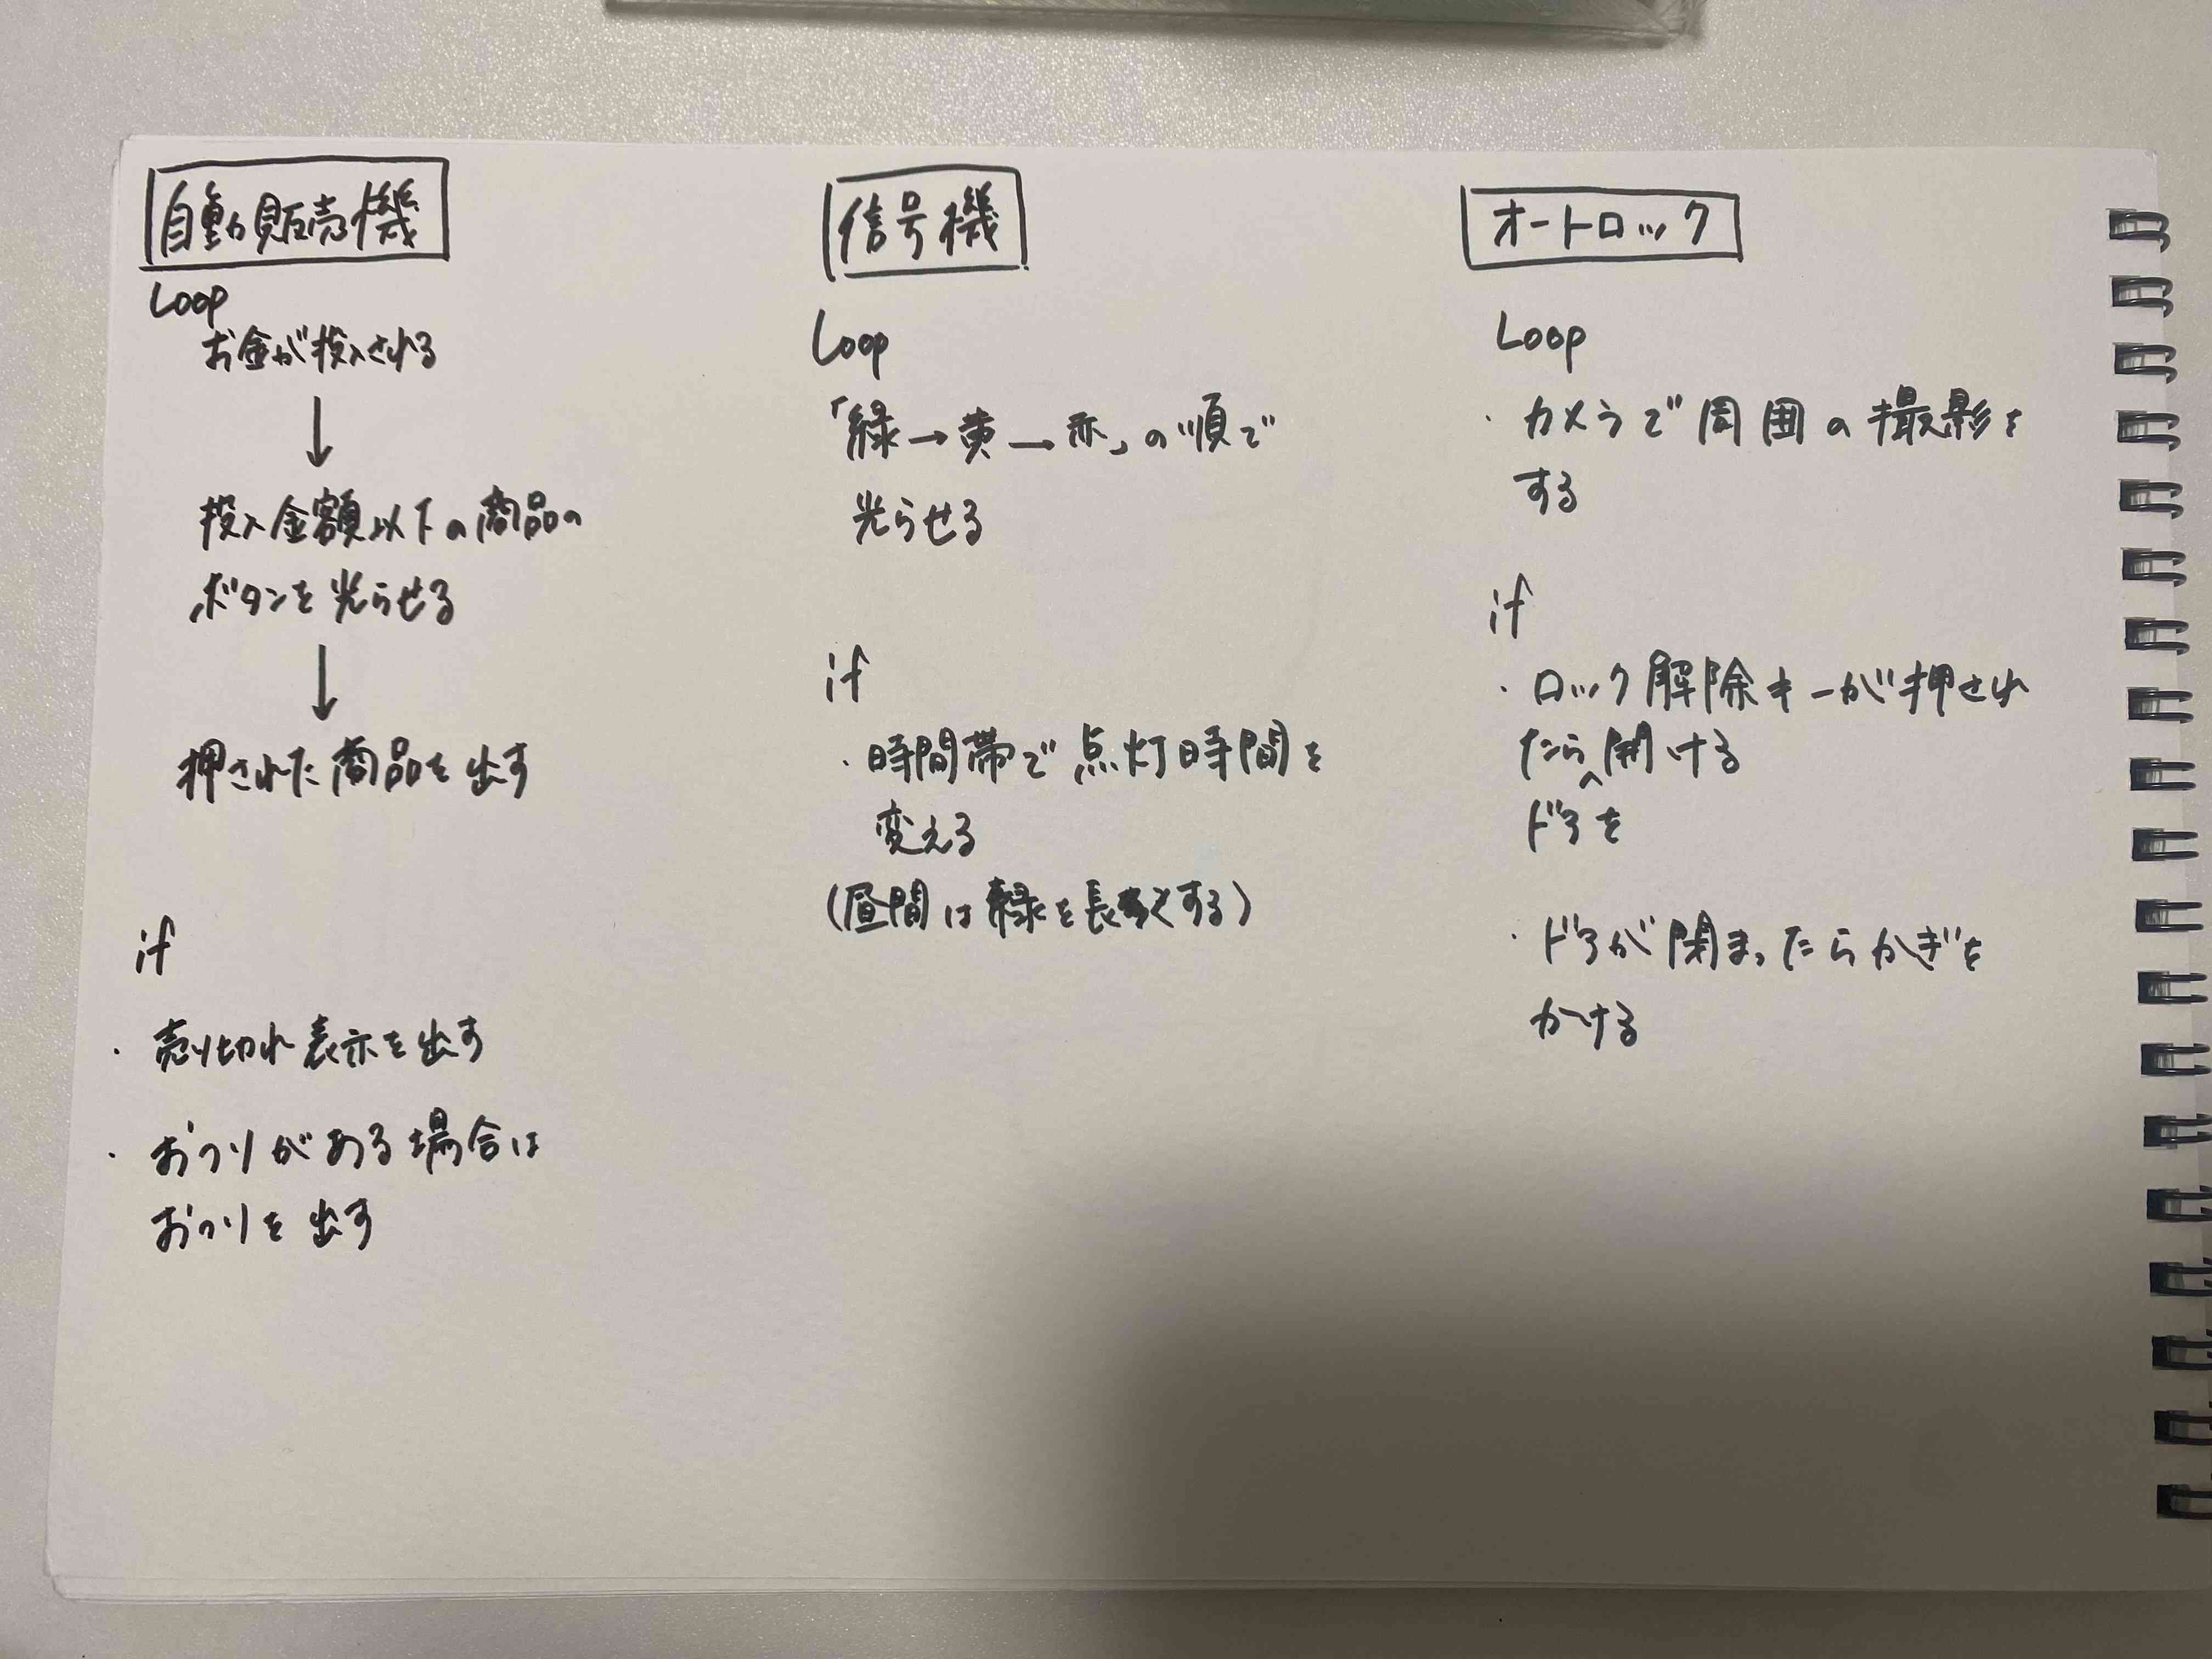 自動販売機
Loop
お金が投入される
↓
投入金額以下の商品の
ボタンを光らせる
↓
押された商品を出す
if
・売り切れ表示を出す
・おつりがある場合は
おつりを出す
信号機
Loop
「緑→黄→赤」の順で
光らせる
if
・時間帯で点灯時間を
変える
(昼間は緑を長くする)
オートロック
Loop
・カメラで周囲の撮影を
する
if
・ロック解除キーが押され
たら開ける
ドアを
・ドアが閉まったらかぎを
かける